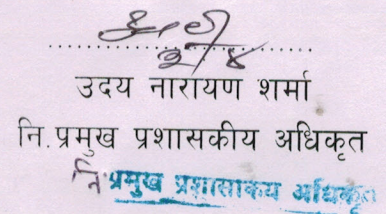 २/४
उदय नारायण शर्मा
नि.प्रमुख प्रशासकीय अधिकृत
नि.प्रमुख प्रशासकीय अधिकृत